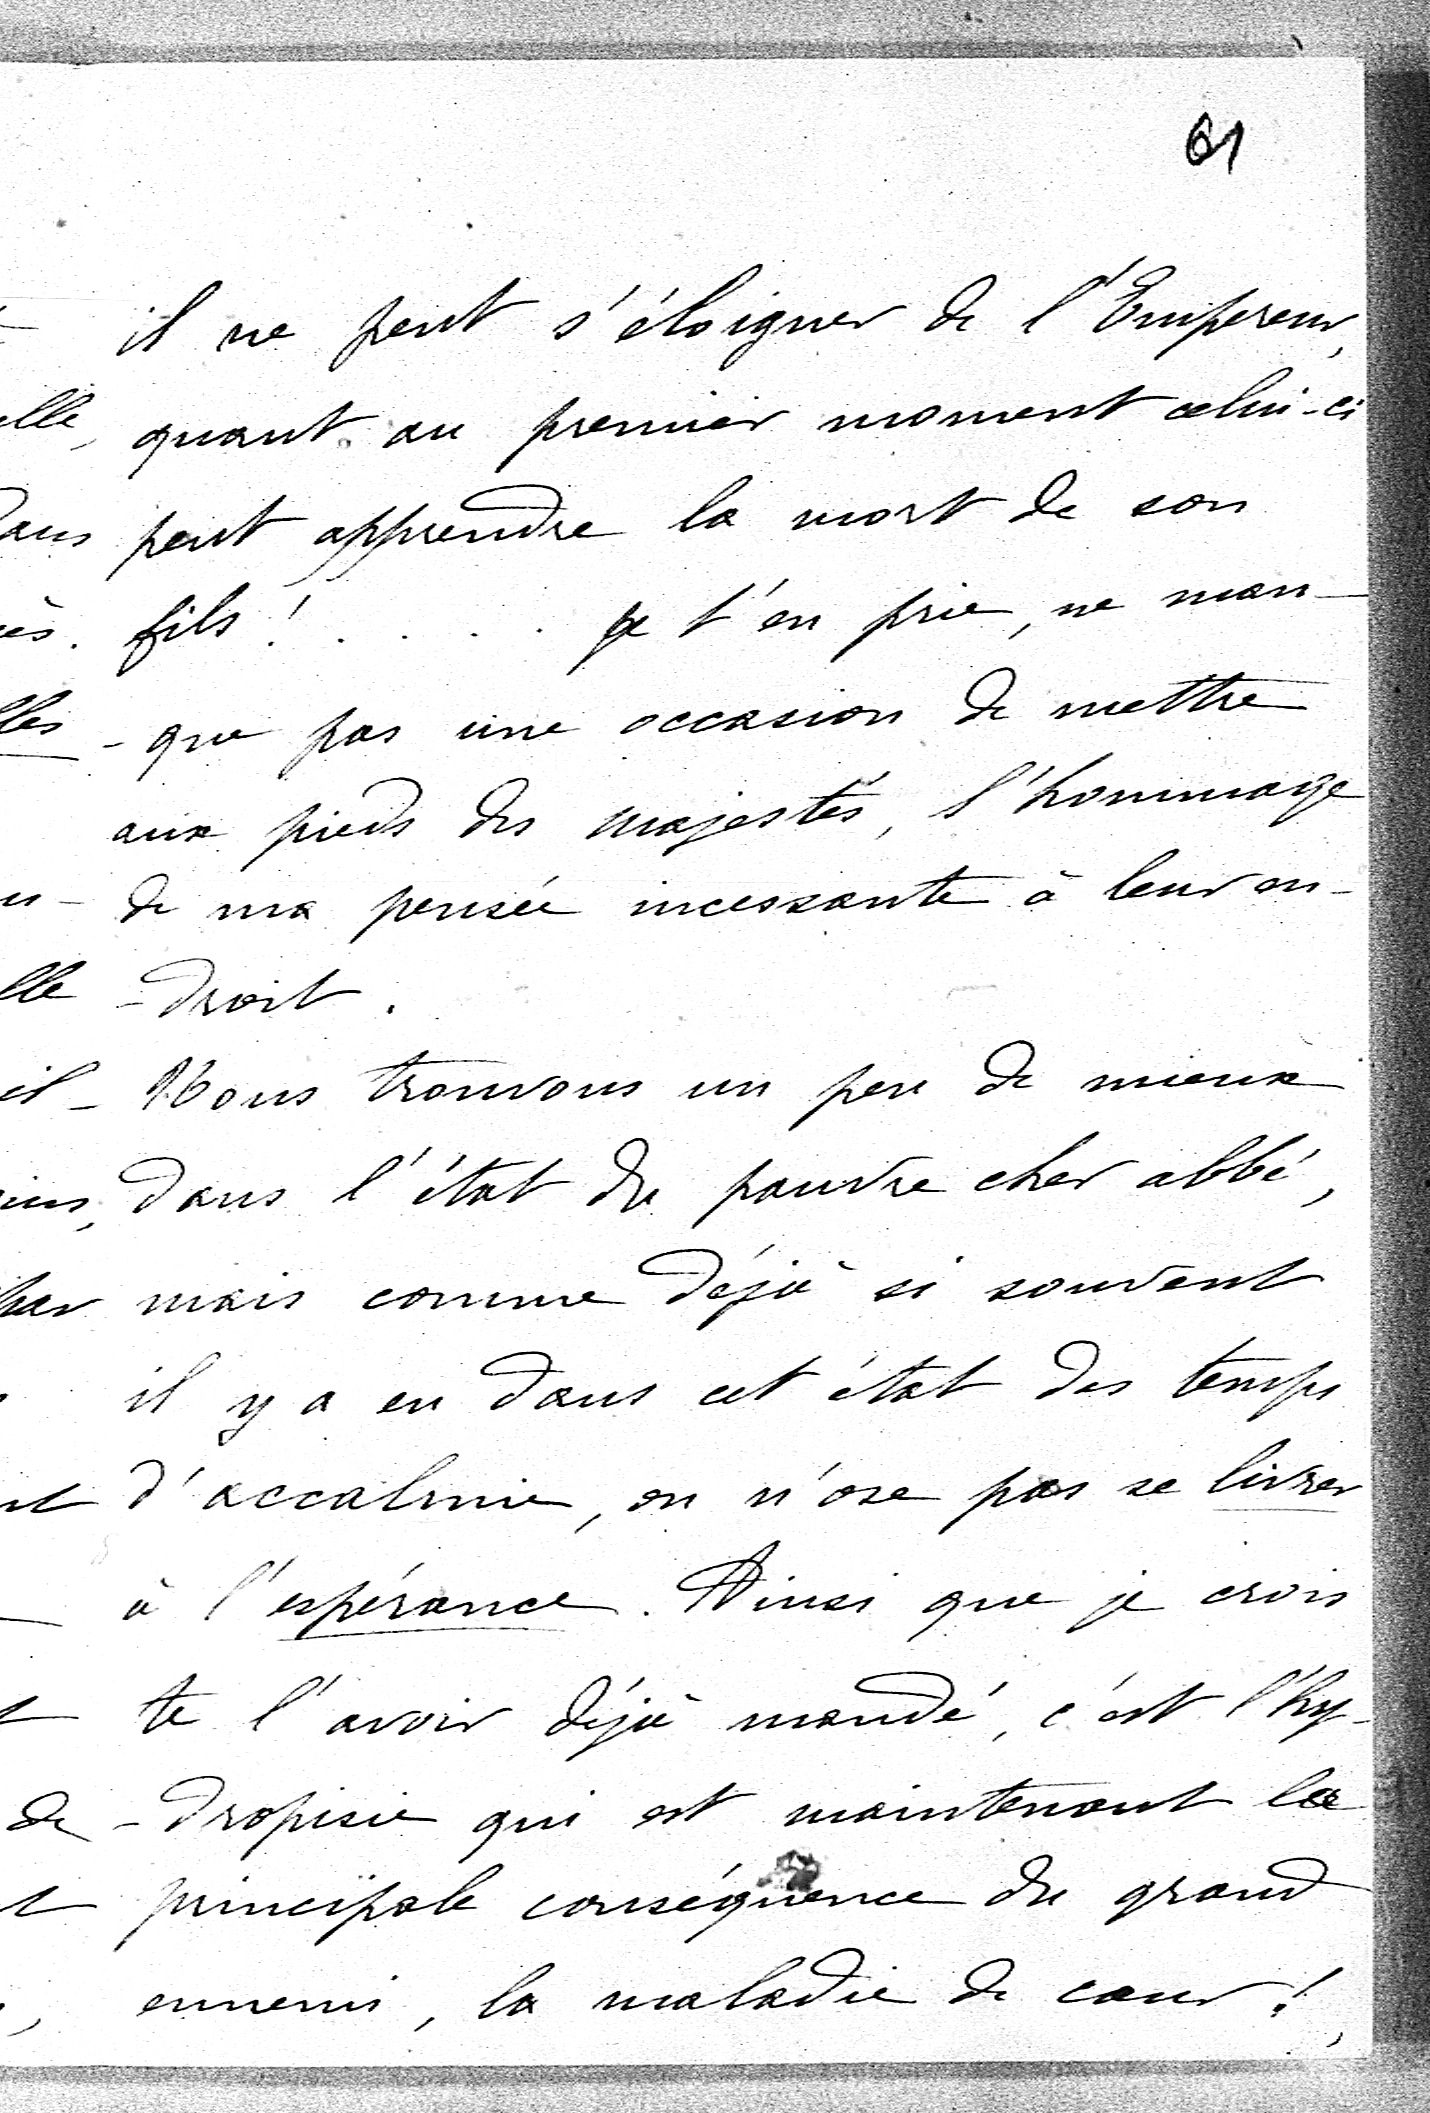 61
il ne peut s'éloigner de l'Empereur,
quant au premier moment celui-ci
peut apprendre la mort de son
fils ! . . . . je t'en prie, ne man-
-que pas une occasion de mettre
aux pieds des majestés, l'hommage
de ma pensée incessante à leur en-
-droit.
Nous trouvons un peu de mieux
dans l'état du pauvre cher abbé,
mais comme déjà si souvent
il y a eu dans cet état des temps
d'accalmie, on n'ose pas se livrer
à l'espérance. Ainsi que je crois
te l'avoir déjà mandé, c'est l'hy-
-dropisie qui est maintenant la
principale conséquence du grand
ennemi, la maladie de cœur !,